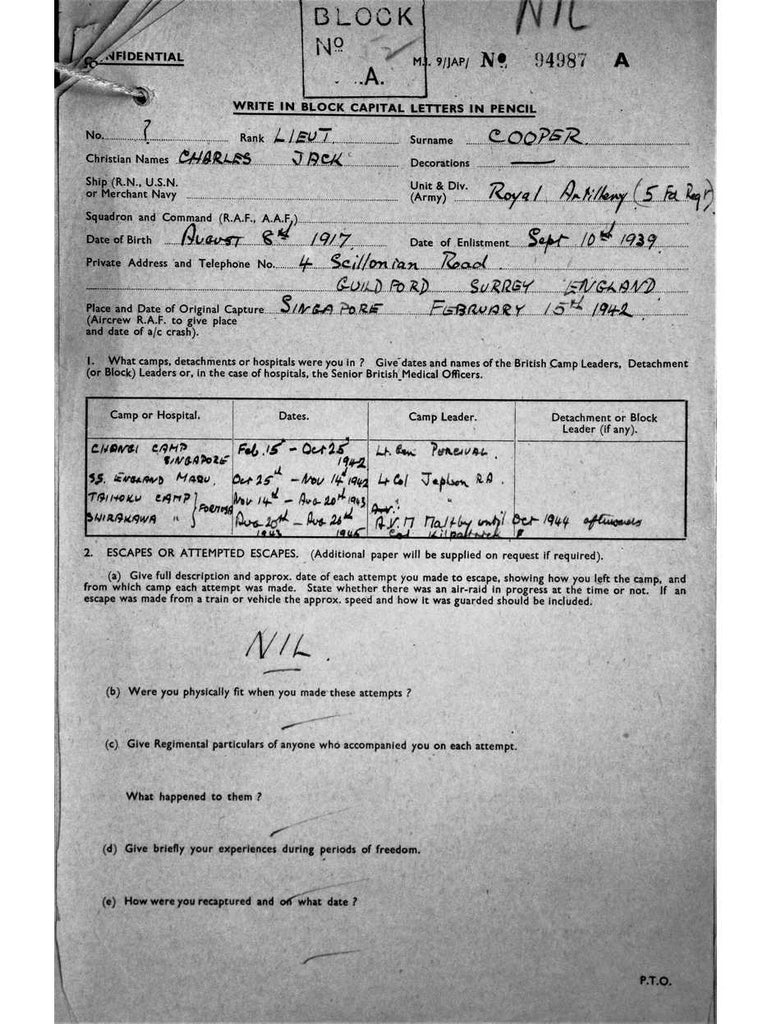 NIL
BLOCK
No
A.
CONFIDENTIAL
M.I. 9/JAP/ No. 94987 A
WRITE IN BLOCK CAPITAL LETTERS IN PENCIL
No. ? Rank LIEUT. Surname COOPER.
Christian Names CHARLES JACK Decorations —
Ship (R.N., U.S.N. or Merchant Navy
Unit & Div. (Army) Royal Artillery (5 Fd Regt)
Squadron and Command (R.A.F., A.A.F.)
Date of Birth AUGUST 8th 1917. Date of Enlistment Sept 10th 1939
Private Address and Telephone No. 4 Scillonian Road.
GUILDFORD SURREY ENGLAND
Place and Date of Original Capture SINGAPORE FEBRUARY 15th 1942
(Aircrew R.A.F. to give place
and date of a/c crash).
1. What camps, detachments or hospitals were you in ? Give dates and names of the British Camp Leaders, Detachment
(or Block) Leaders or, in the case of hospitals, the Senior British Medical Officers.
Camp or Hospital. Dates. Camp Leader. Detachment or Block
Leader (if any).
CHANGI CAMP SINGAPORE Feb. 15 - Oct 25 1942 Lt. Gen PERCIVAL.
SS. ENGLAND MARU. Oct 25th - Nov 14th 1942 Lt Col Jephson RA.
TAIHOKU CAMP } FORMOSA Nov 14th - Aug 20th 1943 "
SHIRAKAWA " Aug 20th 1943 - Aug 26th 1945 A.V.M Maltby until Oct 1944 afterwards
2. ESCAPES OR ATTEMPTED ESCAPES. (Additional paper will be supplied on request if required).
(a) Give full description and approx. date of each attempt you made to escape, showing how you left the camp, and
from which camp each attempt was made. State whether there was an air-raid in progress at the time or not. If an
escape was made from a train or vehicle the approx. speed and how it was guarded should be included.
NIL.
(b) Were you physically fit when you made these attempts ?
(c) Give Regimental particulars of anyone who accompanied you on each attempt.
What happened to them ?
(d) Give briefly your experiences during periods of freedom.
(e) How were you recaptured and on what date ?
P.T.O.